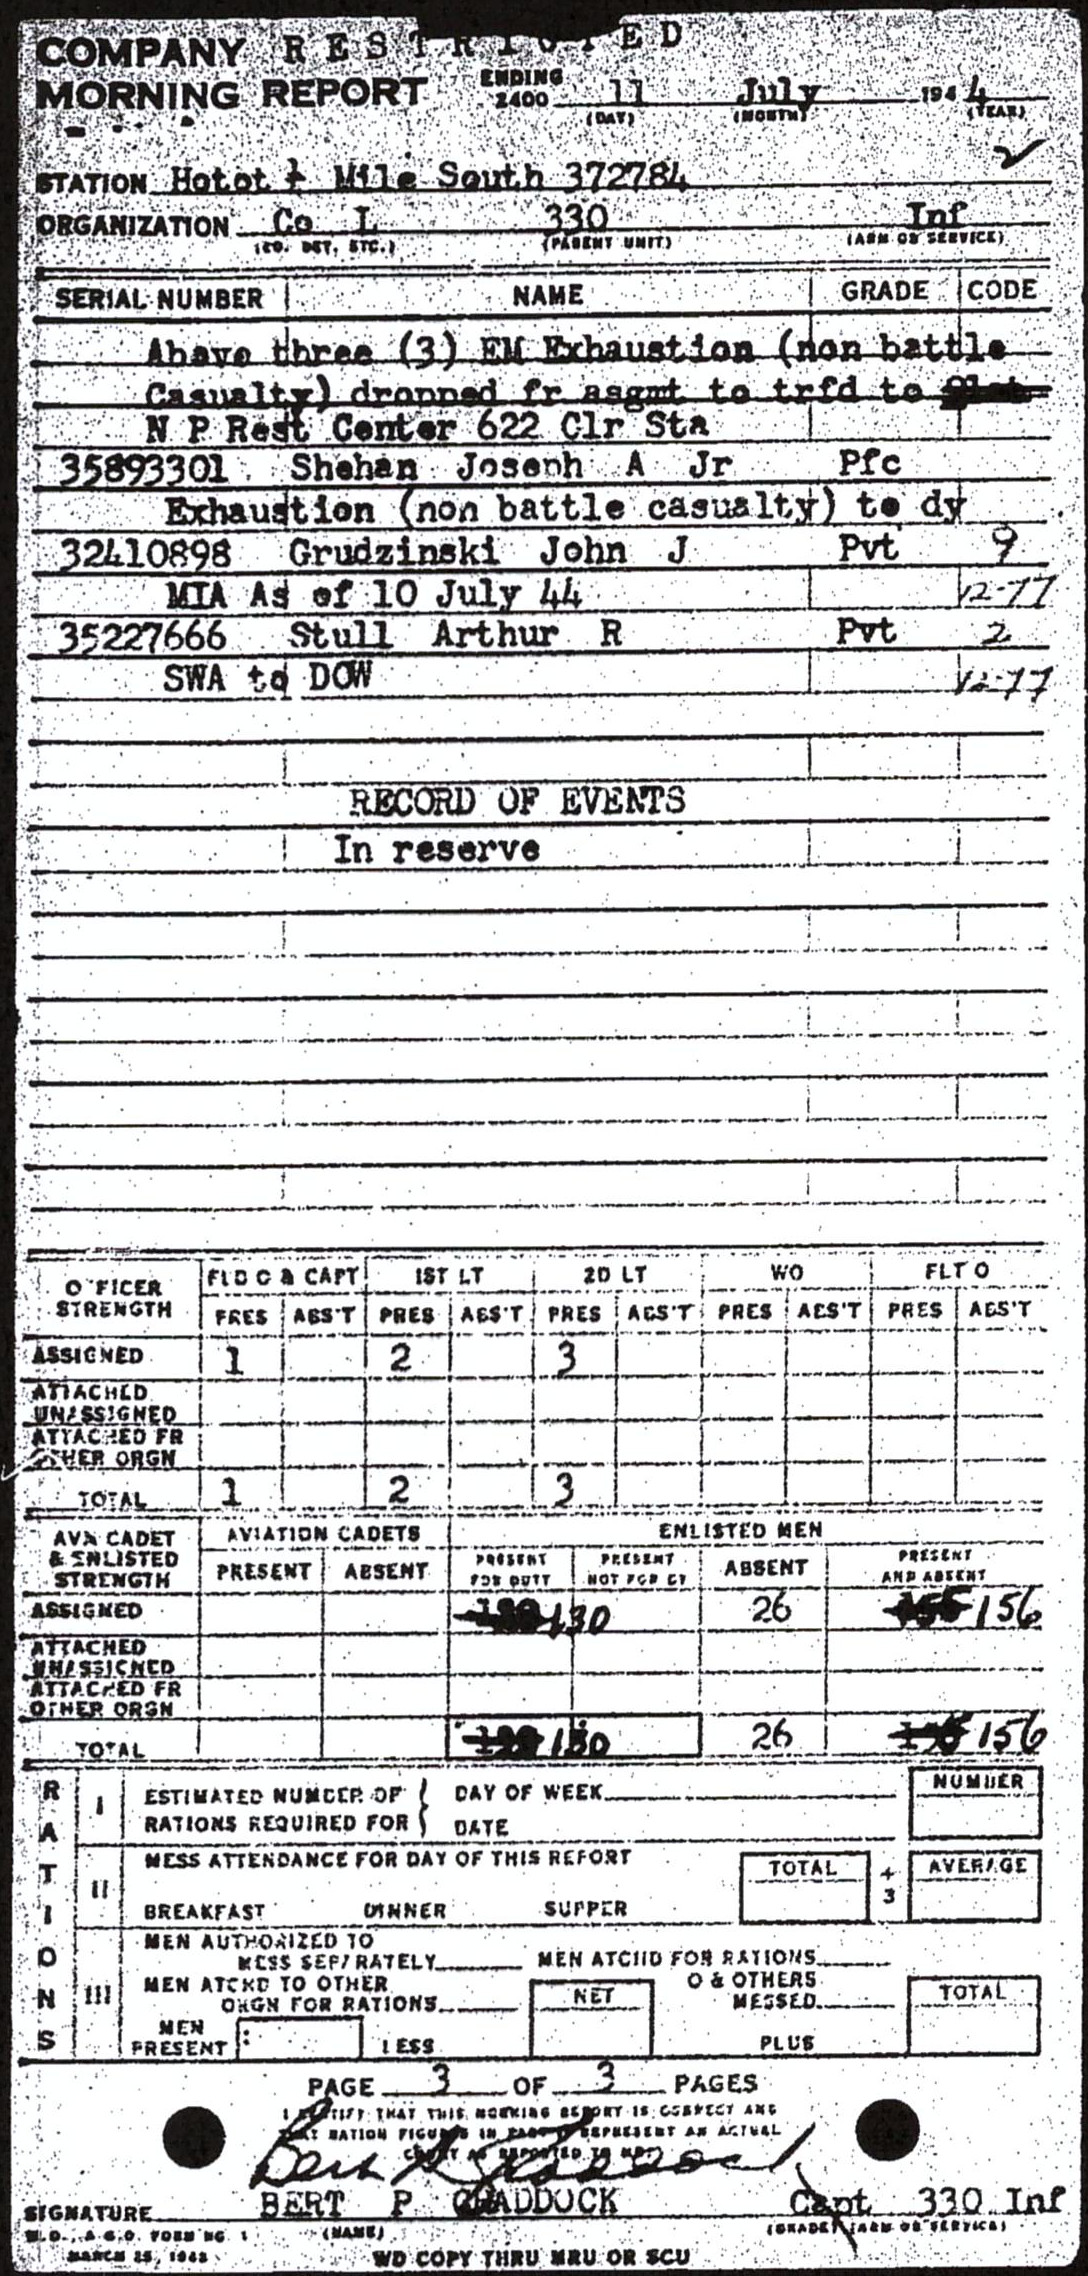 COMPANY RESTRICTED
MORNING REPORT ENDING 2400 11 July 1944
(DAY) (MONTH) (YEAR)
STATION Hotot ½ Mile South 372784
ORGANIZATION Co L 330 Inf
(CO. DET. ETC.) (PARENT UNIT) (ARM OR SERVICE)
SERIAL NUMBER NAME GRADE CODE
Above three (3) EM Exhaustion (non battle
Casualty) dropped fr asgmt to trfd to
N P Rest Center 622 Clr Sta
35893301 Shehan Joseph A Jr Pfc
Exhaustion (non battle casualty) to dy
32410898 Grudzinski John J Pvt 9
MIA As of 10 July 44 12-77
35227666 Stull Arthur R Pvt 2
SWA to DOW 12-77
RECORD OF EVENTS
In reserve
OFFICER STRENGTH FLD O & CAPT 1ST LT 2D LT WO FLT O
PRES ABS'T PRES ABS'T PRES ABS'T PRES ABS'T PRES ABS'T
ASSIGNED 1 2 3
ATTACHED UNASSIGNED
ATTACHED FR OTHER ORGN
TOTAL 1 2 3
AVN CADET & ENLISTED STRENGTH AVIATION CADETS ENLISTED MEN
PRESENT ABSENT PRESENT FOR DUTY PRESENT NOT FOR DY ABSENT PRESENT AND ABSENT
ASSIGNED 130 26 156
ATTACHED UNASSIGNED
ATTACHED FR OTHER ORGN
TOTAL 130 26 156
RATIONS
I ESTIMATED NUMBER OF RATIONS REQUIRED FOR DAY OF WEEK DATE NUMBER
II MESS ATTENDANCE FOR DAY OF THIS REPORT TOTAL ÷ 3 AVERAGE
BREAKFAST DINNER SUPPER
III MEN AUTHORIZED TO MESS SEPARATELY MEN ATCHD FOR RATIONS
MEN ATCHD TO OTHER ORGN FOR RATIONS NET O & OTHERS MESSED TOTAL
MEN PRESENT LESS PLUS
PAGE 3 OF 3 PAGES
I CERTIFY THAT THIS MORNING REPORT IS CORRECT AND
THAT RATION FIGURES IN PART II REPRESENT AN ACTUAL
COUNT AS REPORTED TO ME
SIGNATURE BERT P CHADDOCK Capt 330 Inf
(NAME) (GRADE) (ARM OR SERVICE)
W.D., A.G.O. FORM NO. 1
MARCH 25, 1943
WD COPY THRU MRU OR SCU